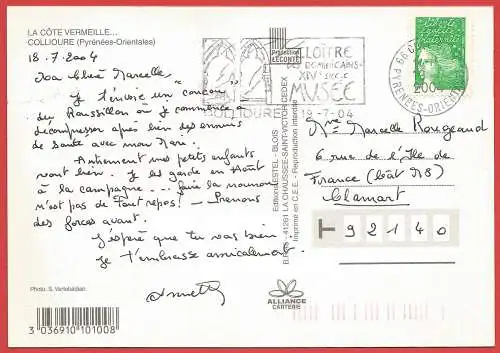 LA CÔTE VERMEILLE...
COLLIOURE (Pyrénées-Orientales)
18.7.2004
Marcelle,
Je t'envoie un coucou
du Roussillon où je commence à
décompresser après bien des ennuis
de santé avec mon Mari.
Autrement mes petits enfants
vont bien. Je les garde en Août
à la campagne... faire la nounou
n'est pas de tout repos! Prenons
des forces avant.
J'espère que tu vas bien.
Je t'embrasse amicalement.
Annette
Photo: S. Vartabédian.
3 036910 101008
Production
LECONTE
Editions ESTEL - BLOIS
B.P. - 41261 LA CHAUSSEE-SAINT-VICTOR CEDEX
Imprimé en C.E.E. - Reproduction interdite
ALLIANCE
CARTERIE
CLOÎTRE
DES DOMINICAINS
XIVe SIECLE
MUSEE
COLLIOURE
19-7-04
2004
PYRENEES-ORIENT
liberté
égalité
fraternité
Mme Marcelle Rougeaud
6 rue de l'Ile de
France (bât N8)
Clamart
92140